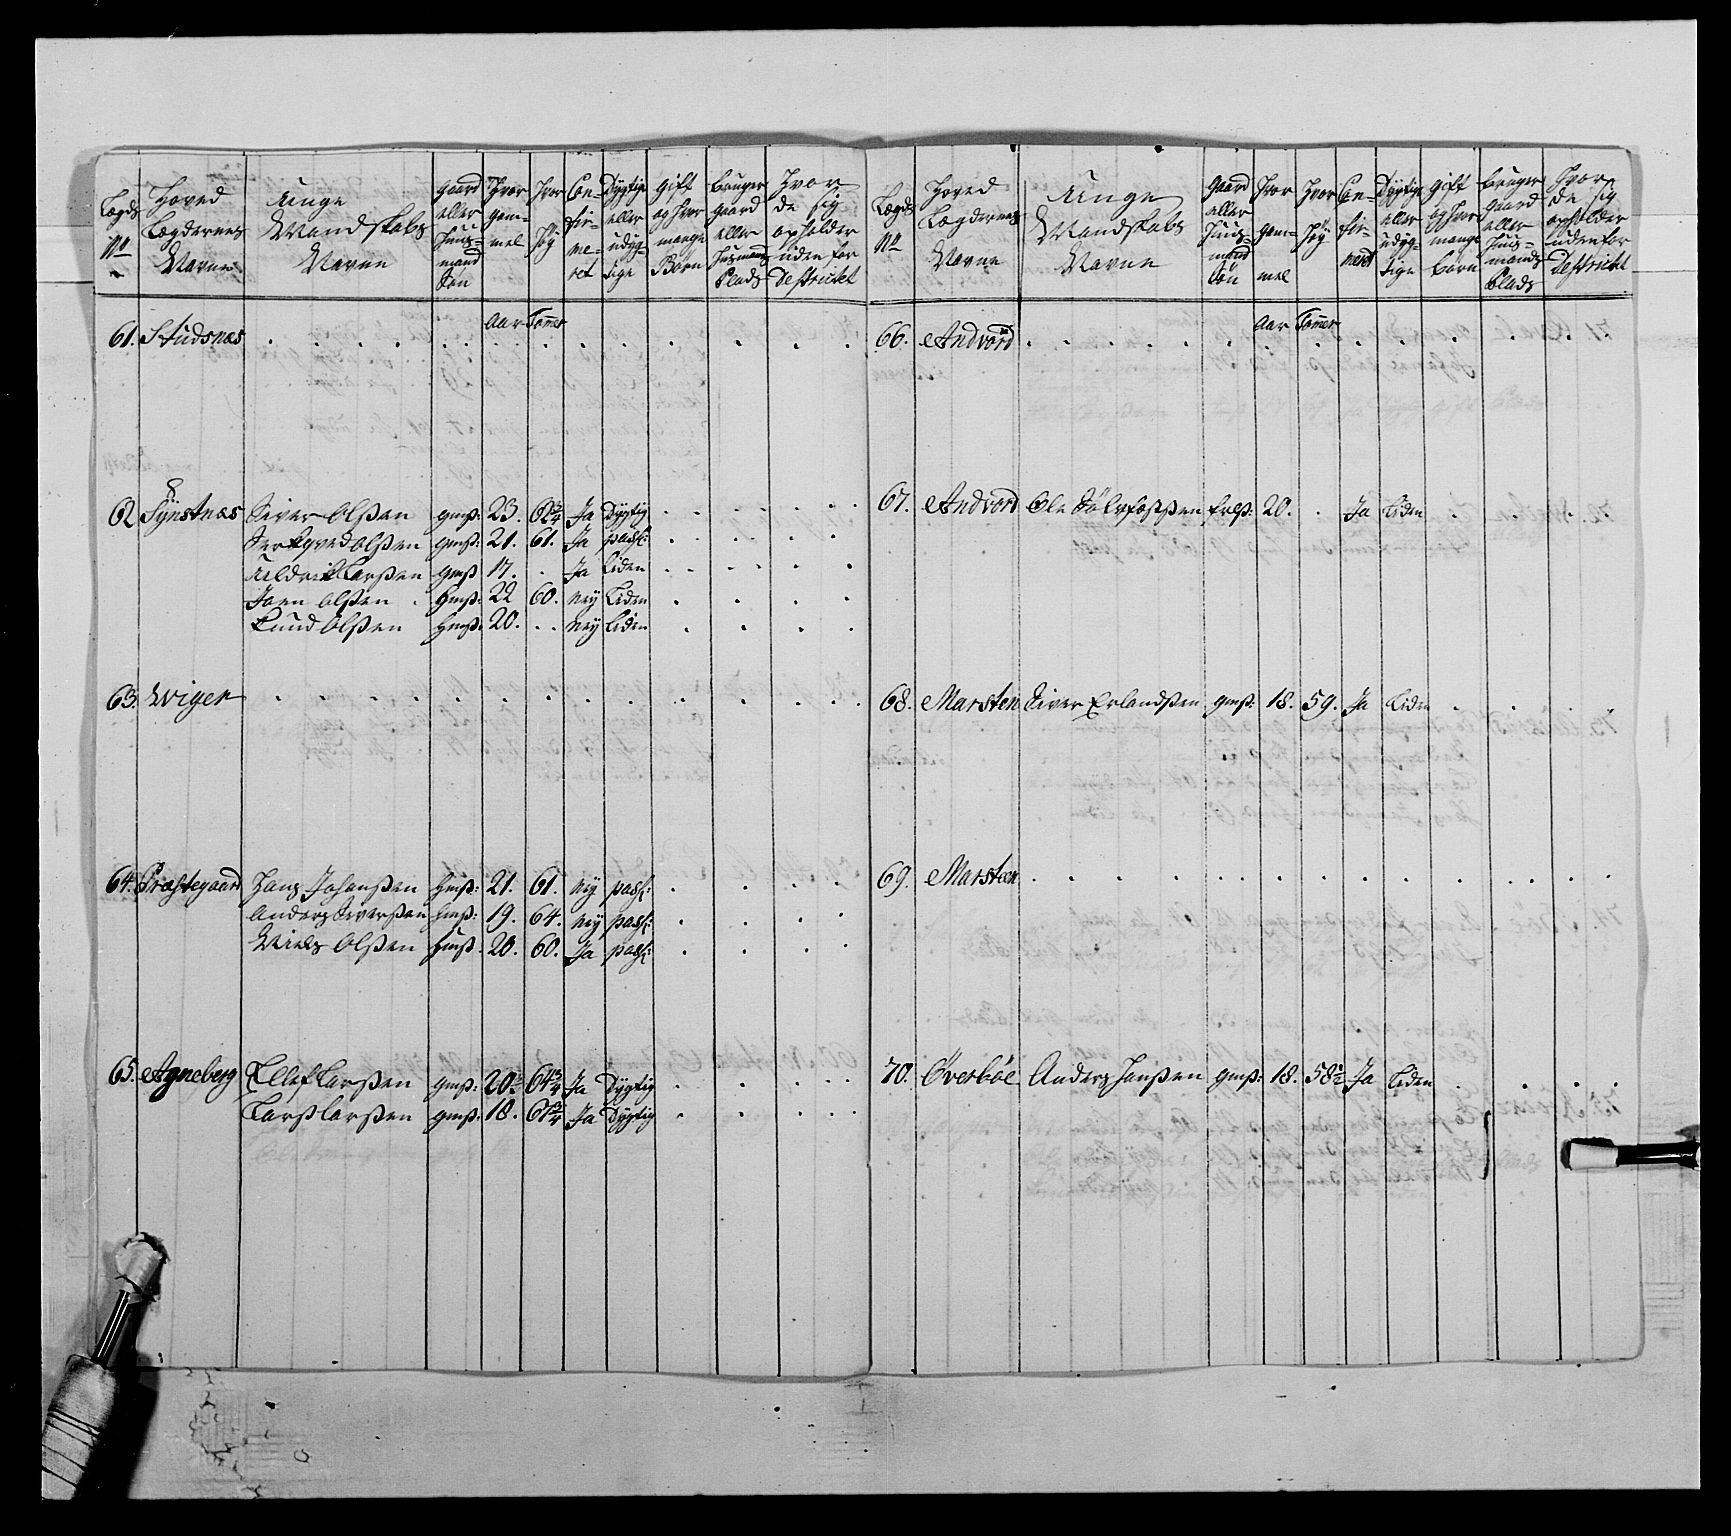 Lægds No
Hoved Lægdernes Navne
Unge Mandskabs Navne
Gaard eller Huusmand Søn
Hvor gammel
Hvor Høy
Confirmeret
Dygtige eller udygtige
Gift og hvor mange Børn
Bruger gaard eller Husmands Plads
Hvor de sig opholder uden for Destrictet
Aar Tommer
61. Studsnæs
62 Synstnæs Siver Olßen gmß: 23. 62 3/4 Ja Dygtig
Olßen gmß: 21. 61. Ja pass:
Larßen gmß 17. Ja Liden
Joen Olßen hmß: 22 60. ney Liden
Knud Olßen hmß: 20. ney Liden
63. Wiger
64. Præstegaard Hans Johanßen hmß: 21. 61. ney pass:
Anders Siverßen hmß: 19. 64. ney pass:
Niels Olßen hmß: 20. 60. Ja pass:
65. Agneberg Ellef Larßen gmß: 20. 64 3/4 Ja Dygtig
Lars Larßen gmß: 18. 61 3/4 Ja Dygtig
Lægds No
Hoved Lægdernes Navne
Unge Mandskabs Navne
Gaard eller Huusmand Søn
Hvor gammel
Hvor Høy
Confirmeret
Dygtige eller udygtige
Gift og hvor mange Børn
Bruger Gaard eller Huusmands Plads
Hvor de sig opholder uden for Destrictet
Aar Tommer
66. Andvord
67. Andvord Ole 20. Ja Liden
68. Marsten Siver Erlandßen gmß: 18. 59. Ja Liden
69. Marsten
70. Øverbøe Anders Hanßen gmß: 18. 58 1/2 Ja Liden